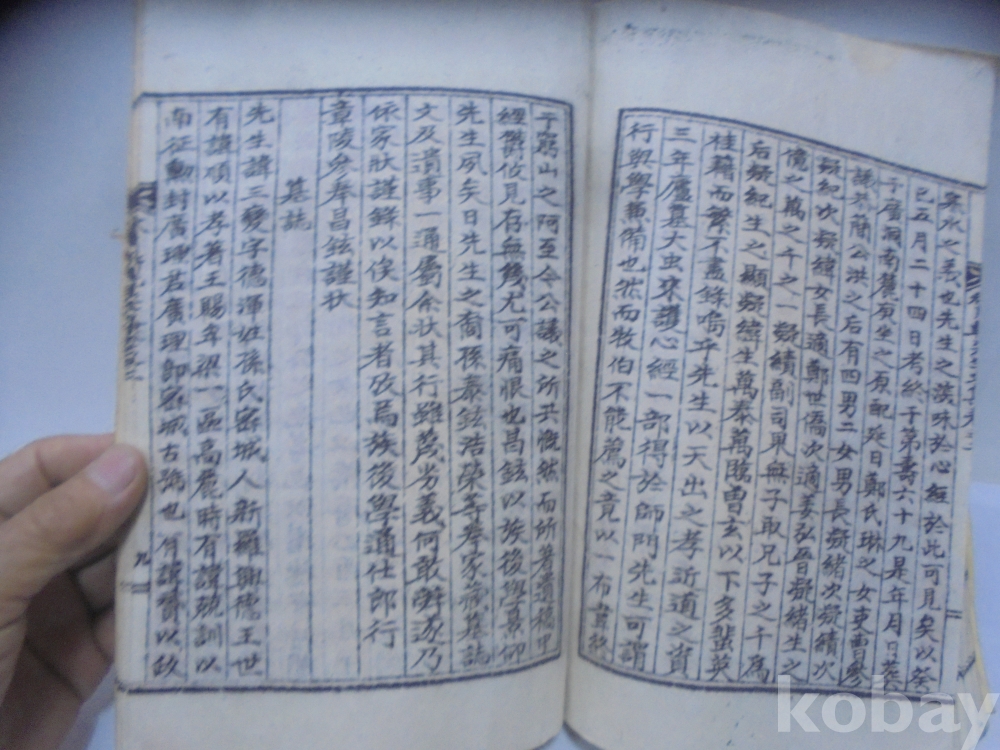 寒水之義也先生之淡味於心經於此可見矣以癸
巳五月二十四日考終于第壽六十九是年月日葬
于唐洞南麓庚坐之原配延日鄭氏琳之女吏曹參
議共簡公洪之后有四男二女男長凝緒次凝績次
凝紀次凝緯女長適鄭世僑次適姜弘晉凝緖生之
億之萬之千之一凝績副司果無子取兄子之千爲
后凝紀生之顯凝緯生萬泰萬臨曾玄以下多蜚英
桂籍而繁不盡錄嗚乎先生以天出之孝近道之資
三年廬墓大虫來護心經一部得於師門先生可謂
行與學兼備也然而牧伯不能薦之竟以一布韋終
于窮山之阿至今公議之所共慨然而所著遺稿中
經鬱攸見存無幾尤可痛恨也昌鉉以族後學景仰
先生夙矣日先生之裔孫泰鉉浩榮等奉家藏墓誌
文及遺事一通屬余狀其行雖蔑劣義何敢辭遂乃
依家狀謹錄以俟知言者攷焉族後學通仕郎行
章陵參奉昌鉉謹狀
墓誌
先生諱三變字德渾姓孫氏密城人新羅興德王世
有諱順以孝著王賜年粱一區高麗時有諱琉訓以
南征勳封廣理君廣理卽密城古號也有諱贇以政
九
kobay